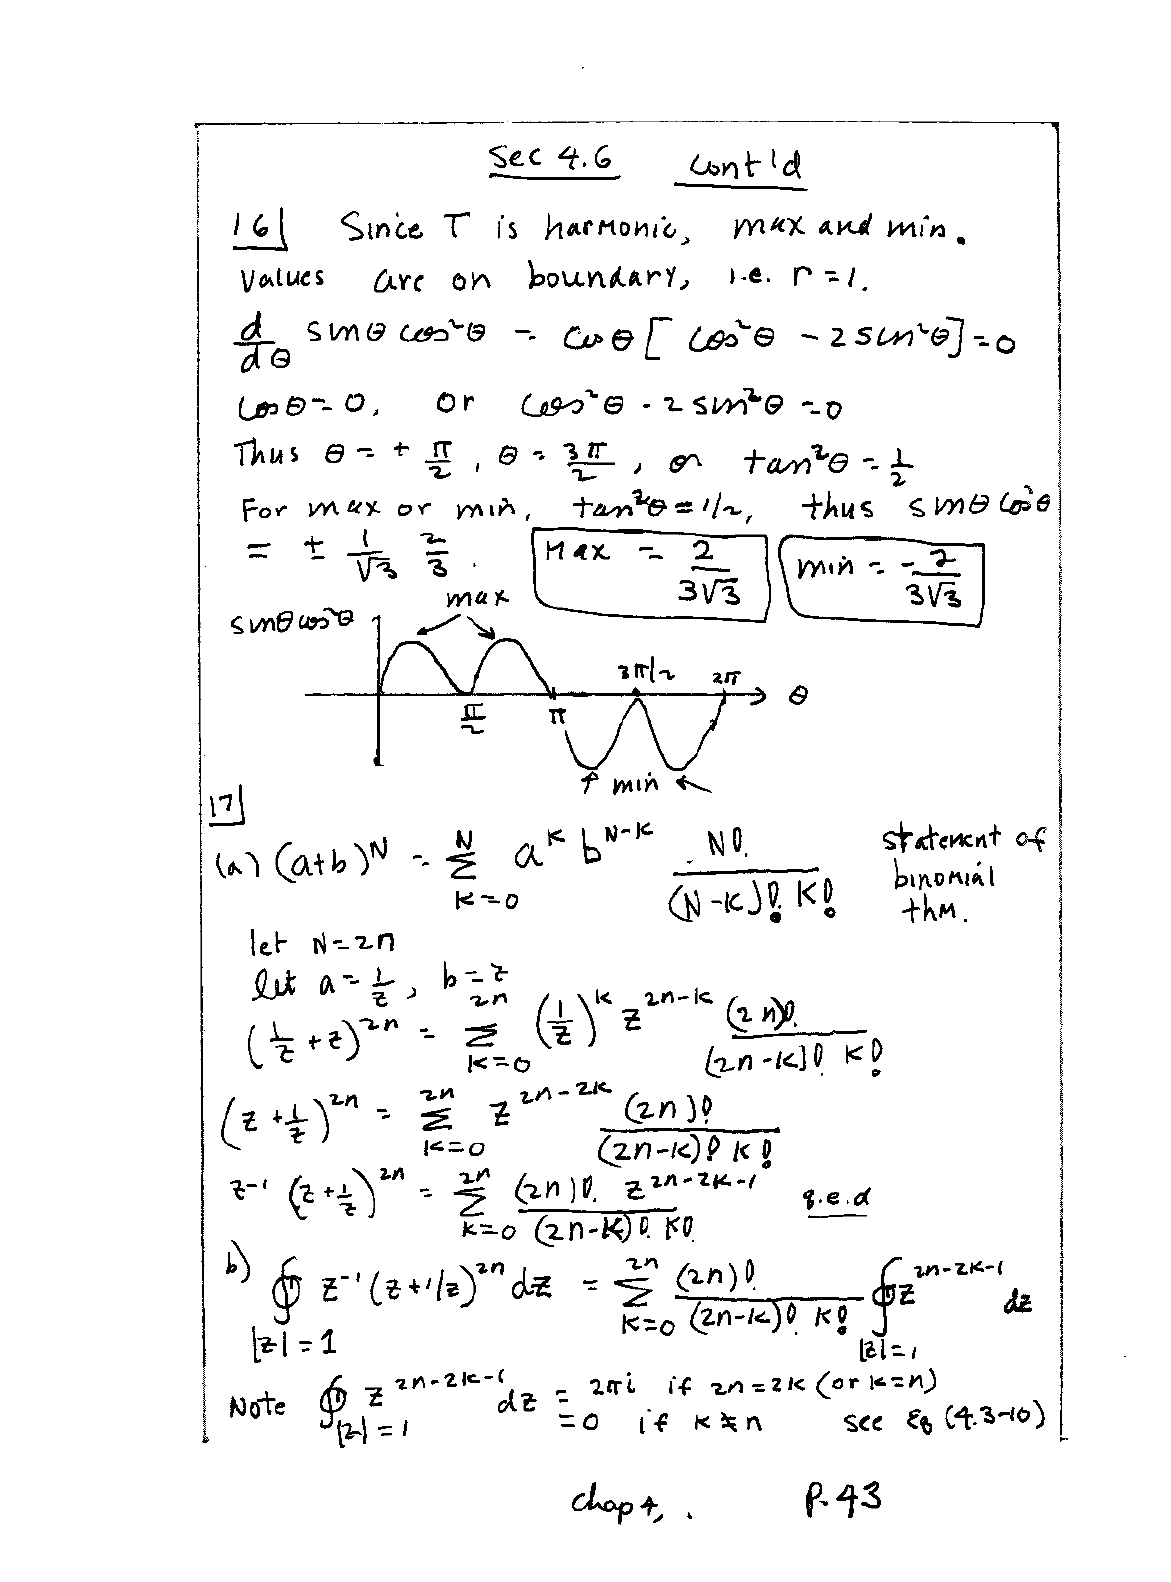 Sec 4.6 cont'd
16] Since T is harmonic, max and min.
Values are on boundary, i.e. r = 1.
d/dθ sinθ cos²θ = cosθ [cos²θ - 2 sin²θ] = 0
cosθ = 0, or cos²θ - 2 sin²θ = 0
Thus θ = + π/2, θ = 3π/2, or tan²θ = 1/2
For max or min, tan²θ = 1/2, thus sinθ cos²θ
= ± 1/√3 2/3. Max = 2/(3√3) min = -2/(3√3)
sinθ cos²θ max
3π/2 2π
θ
π/2 π
min
17]
(a) (a+b)^N = Σ_{k=0}^{N} a^k b^{N-k} N!/((N-k)! k!) statement of
binomial
thm.
let N = 2n
let a = 1/z, b = z
(1/z + z)^{2n} = Σ_{k=0}^{2n} (1/z)^k z^{2n-k} (2n)!/((2n-k)! k!)
(z + 1/z)^{2n} = Σ_{k=0}^{2n} z^{2n-2k} (2n)!/((2n-k)! k!)
z^{-1} (z + 1/z)^{2n} = Σ_{k=0}^{2n} (2n)! z^{2n-2k-1}/((2n-k)! k!) q.e.d
b) ∮_{|z|=1} z^{-1} (z + 1/z)^{2n} dz = Σ_{k=0}^{2n} (2n)!/((2n-k)! k!) ∮_{|z|=1} z^{2n-2k-1} dz
Note ∮_{|z|=1} z^{2n-2k-1} dz = 2πi if 2n = 2k (or k=n)
= 0 if k ≠ n see Eq (4.3-10)
chap 4, . P. 43